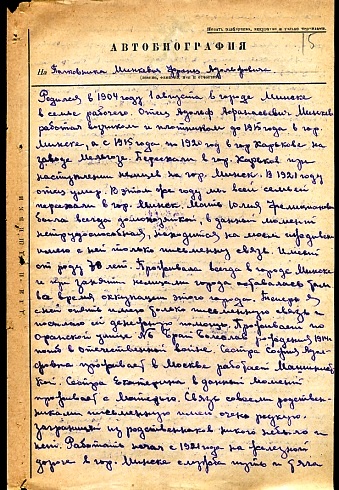 Писать разборчиво, аккуратно и только чернилами.
15
АВТОБИОГРАФИЯ
На Полковника Минкевич Франц Адольфович.
(звание, фамилия, имя и отчество)
Родился в 1904 году 1 августа в городе Минске
в семье рабочего. Отец Адольф Минкевич
работал и плотником до 1915 года в гор.
Минске, а с 1915 года по 1920 год в гор Харькове на
заводе Переехали в гор. Харьков при
наступлении немцев на гор. Минск. В 1921 году
отец умер. В этом же году мы всей семьей
переехали в гор. Минск. Мать Юлия
была всегда домохозяйкой, в данный момент
нетрудоспособная, находится на моем иждивении
имею с ней только письменную связь. Имеет
от роду 70 лет. Проживала всегда в городе Минске
и при занятии немцами города оставалась там
во время оккупации этого города. Теперь я
с ней опять имею только письменную связь и
посылаю ей денежную помощь. Проживает по
улице Брат рождения 1914
погиб в отечественной войне. Сестра София
проживает в Москве работает
Сестра Екатерина в данный момент
проживает с матерью. Связь со своими родствен-
никами письменную имею очень редкую.
Заграницей из родственников никого небыло и
нет. Работать начал с 1921 года на железной
дороге в гор. Минске служба пути и тяга
ДЛЯ ПОДШИВКИ